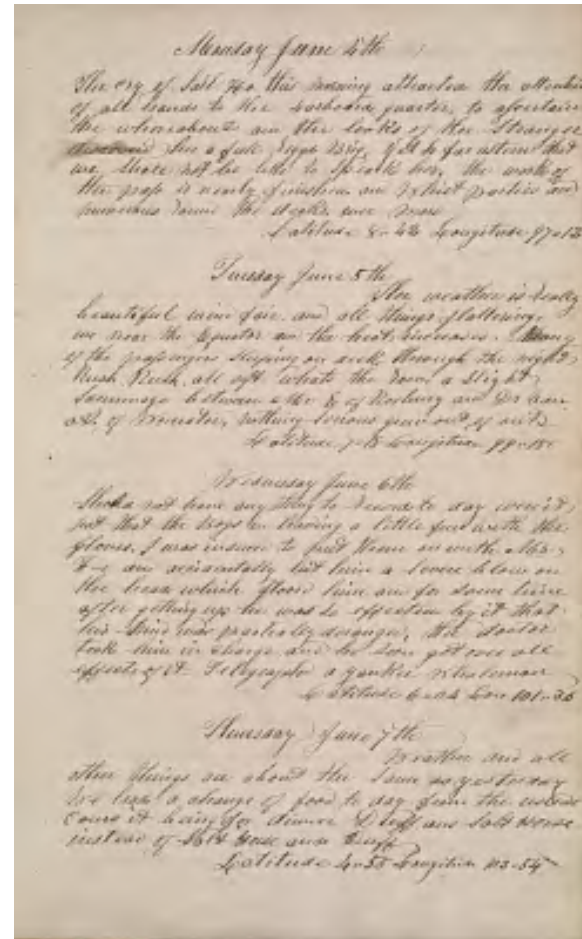 Monday June 4th
The cry of Sail Ho this morning attracted the attention
of all hands to the larboard quarter, to ascertain
the whereabouts and the looks of the Stranger
she a full rigg'd brig, yet so far astern that
we shall not be able to speak her, the work of
the is nearly finished and Whist parties are
numerous round the decks once more
Latitude 8-48 Longitude 97-12
Tuesday June 5th
The weather is really
beautiful wind fair and all things flattering,
we near the Equator and the heat increases. Many
of the passengers sleeping on deck through the night
Rush Rush all aft whats the row a slight
between Mr of Roxbury and Dr
of Worcester, nothing serious grew out of it
Latitude Longitude 99-
Wednesday June 6th
Should not have any thing to record to day were it
not that the boys in having a little fun with the
gloves, I was induced to put them on with Mr
and accidentally hit him a severe blow on
the head which floored him and for some time
after getting up he was so affected by it that
his mind was partially deranged, the doctor
took him in charge and he soon got over all
effects of it Telegraph a yankee
Latitude Lon 101-35
Thursday June 7th
Weather and all
other things are about the same as yesterday
We had a change of food to day from the usual
course it being for dinner Duff and Salt Horse
instead of Salt Horse and Duff
Latitude 4-55 Longitude 103-54